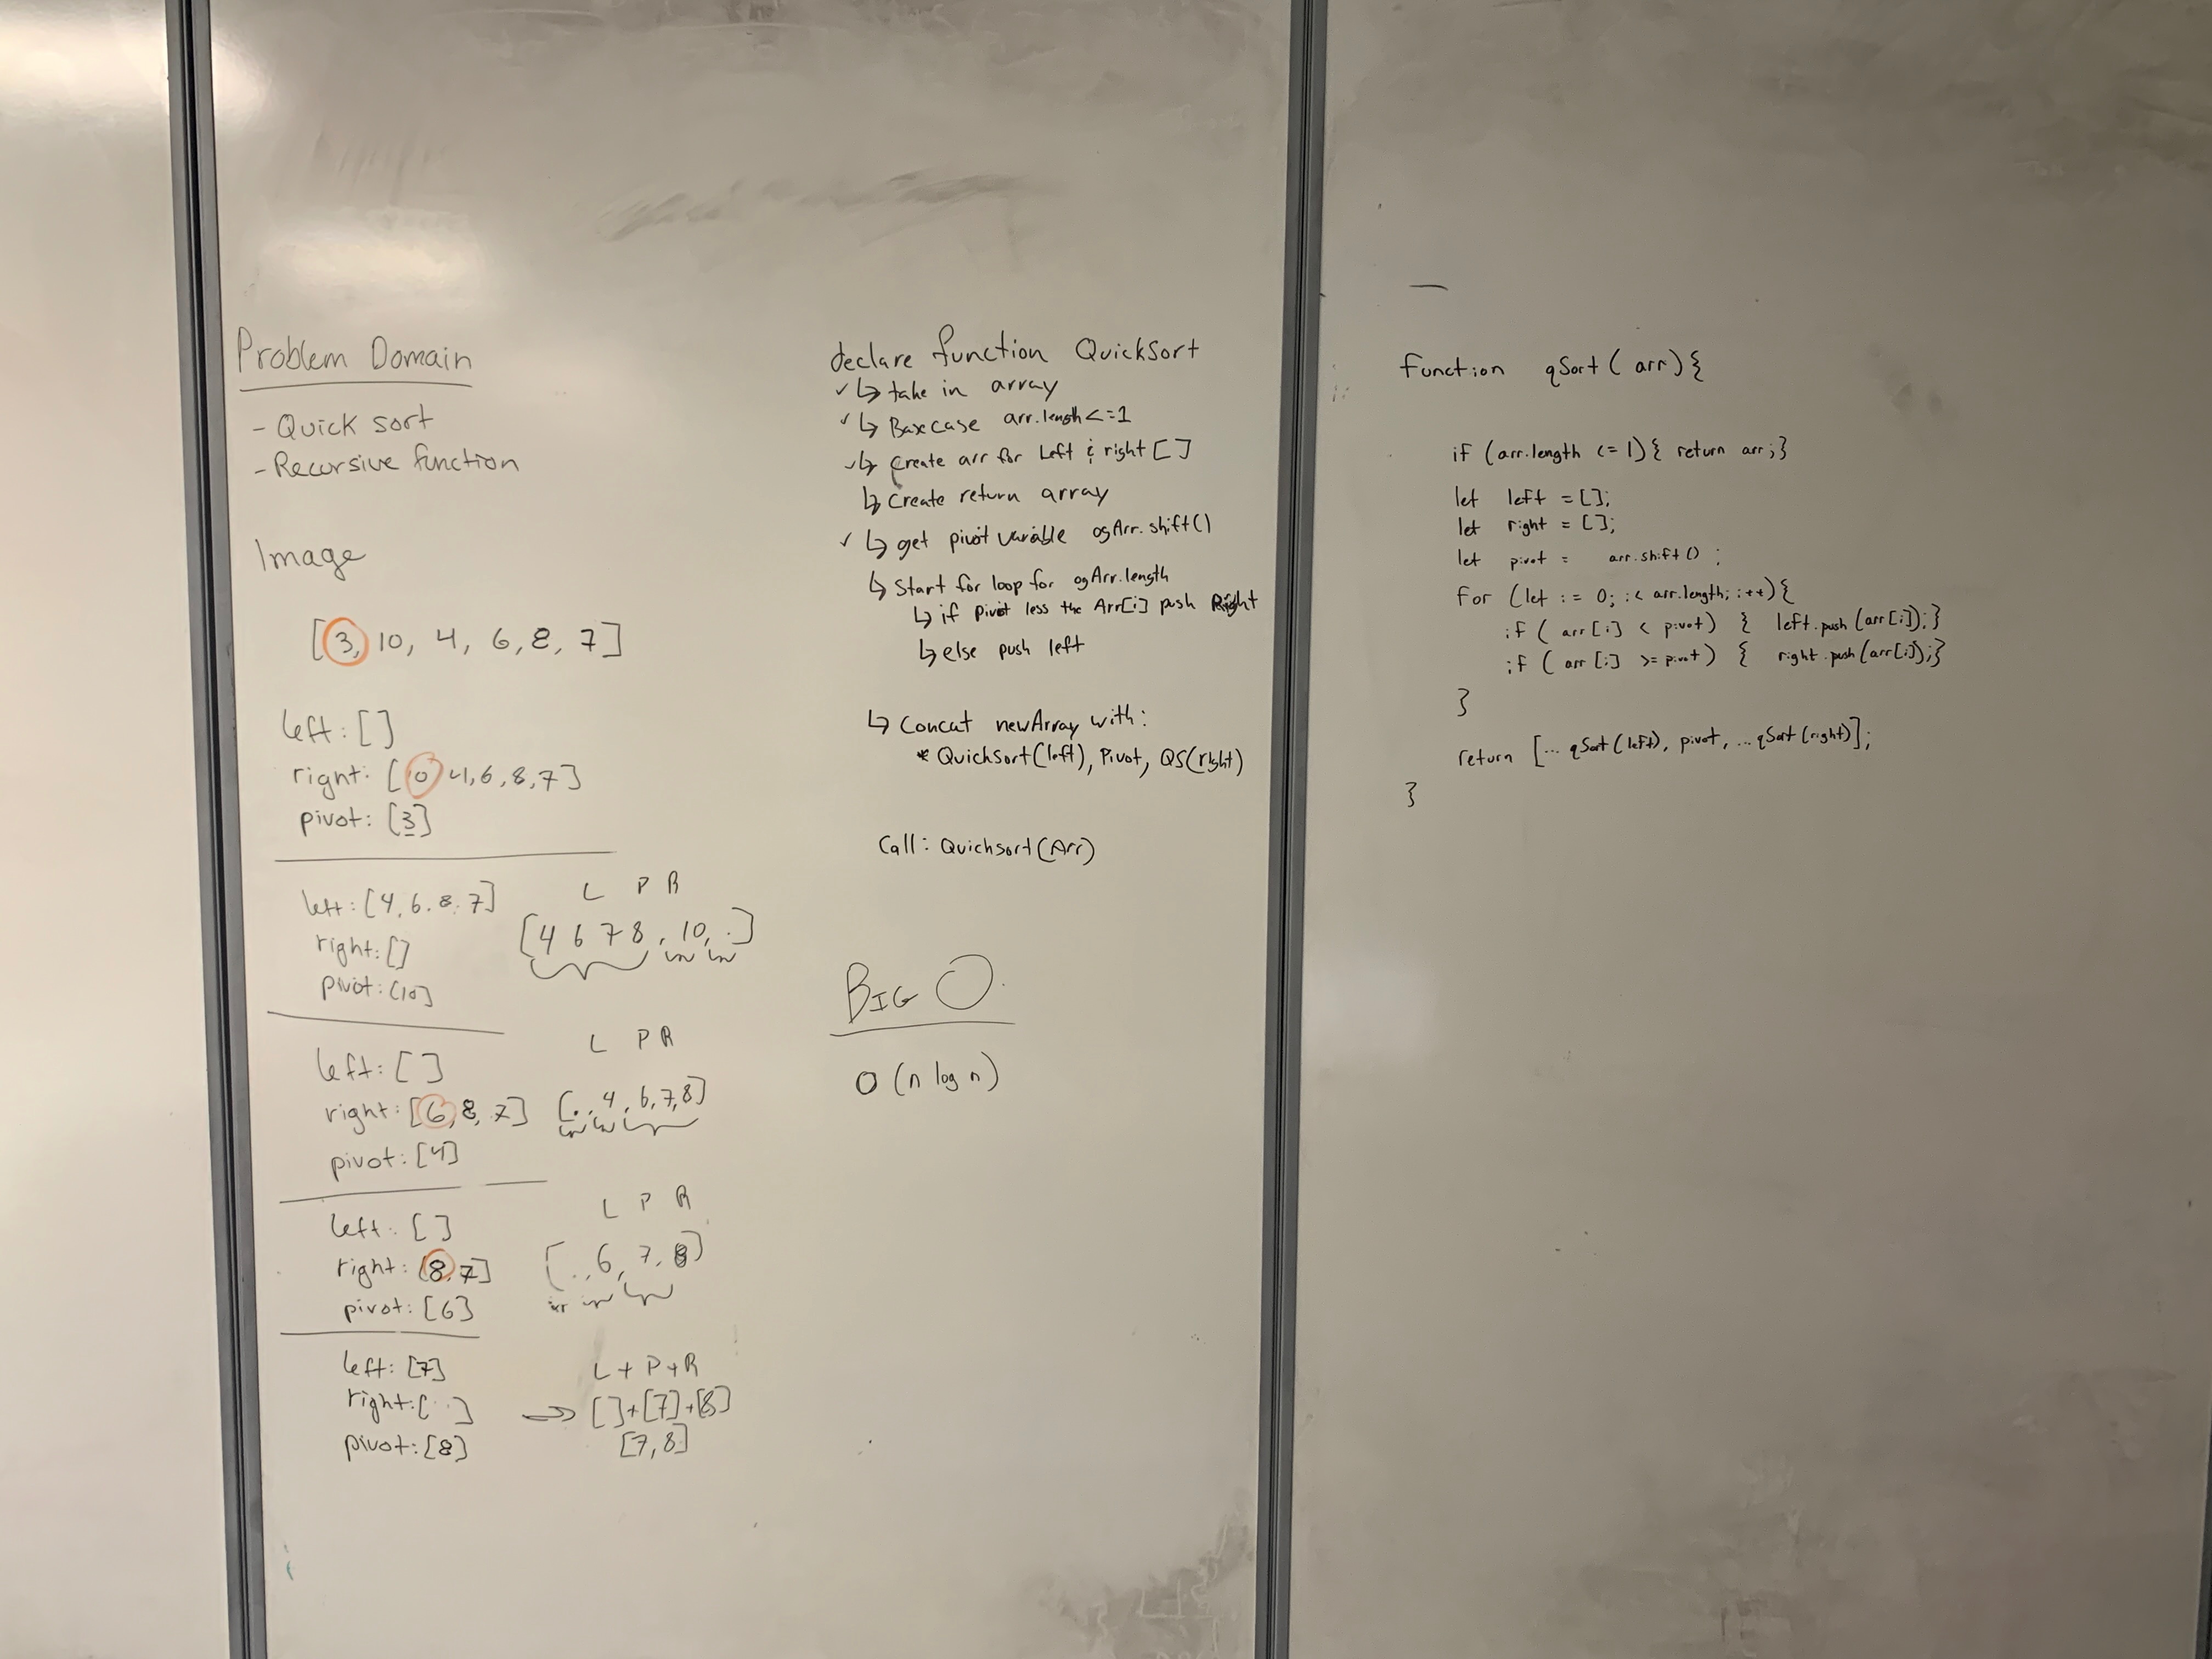 Problem Domain
- Quick sort
- Recursive function
Image
[3, 10, 4, 6, 8, 7]
left: []
right: [10 4, 6, 8, 7]
pivot: [3]
left: [4, 6, 8, 7]
right: []
pivot: [10]
L P R
[4 6 7 8, 10, .]
left: []
right: [6, 8, 7]
pivot: [4]
L P R
[., 4, 6, 7, 8]
left: []
right: [8, 7]
pivot: [6]
L P R
[., 6, 7, 8]
left: [7]
right: [..]
pivot: [8]
L + P + R
⇒ [] + [7] + [8]
[7, 8]
declare function QuickSort
✓ ↳ take in array
✓ ↳ Basecase arr.length <= 1
✓ ↳ Create arr for Left & right []
↳ Create return array
✓ ↳ get pivot variable ogArr.shift()
↳ Start for loop for ogArr.length
↳ if pivot less the Arr[i] push Right
↳ else push left
↳ Concat newArray with:
* QuickSort(left), Pivot, QS(right)
Call: Quicksort(Arr)
BIG O
O (n log n)
function qSort( arr){
if (arr.length <= 1){ return arr;}
let left = [];
let right = [];
let pivot = arr.shift();
for (let i = 0; i < arr.length; i++){
if ( arr[i] < pivot) { left.push(arr[i]);}
if ( arr[i] >= pivot) { right.push(arr[i]);}
}
return [... qSort(left), pivot, ... qSort(right)];
}